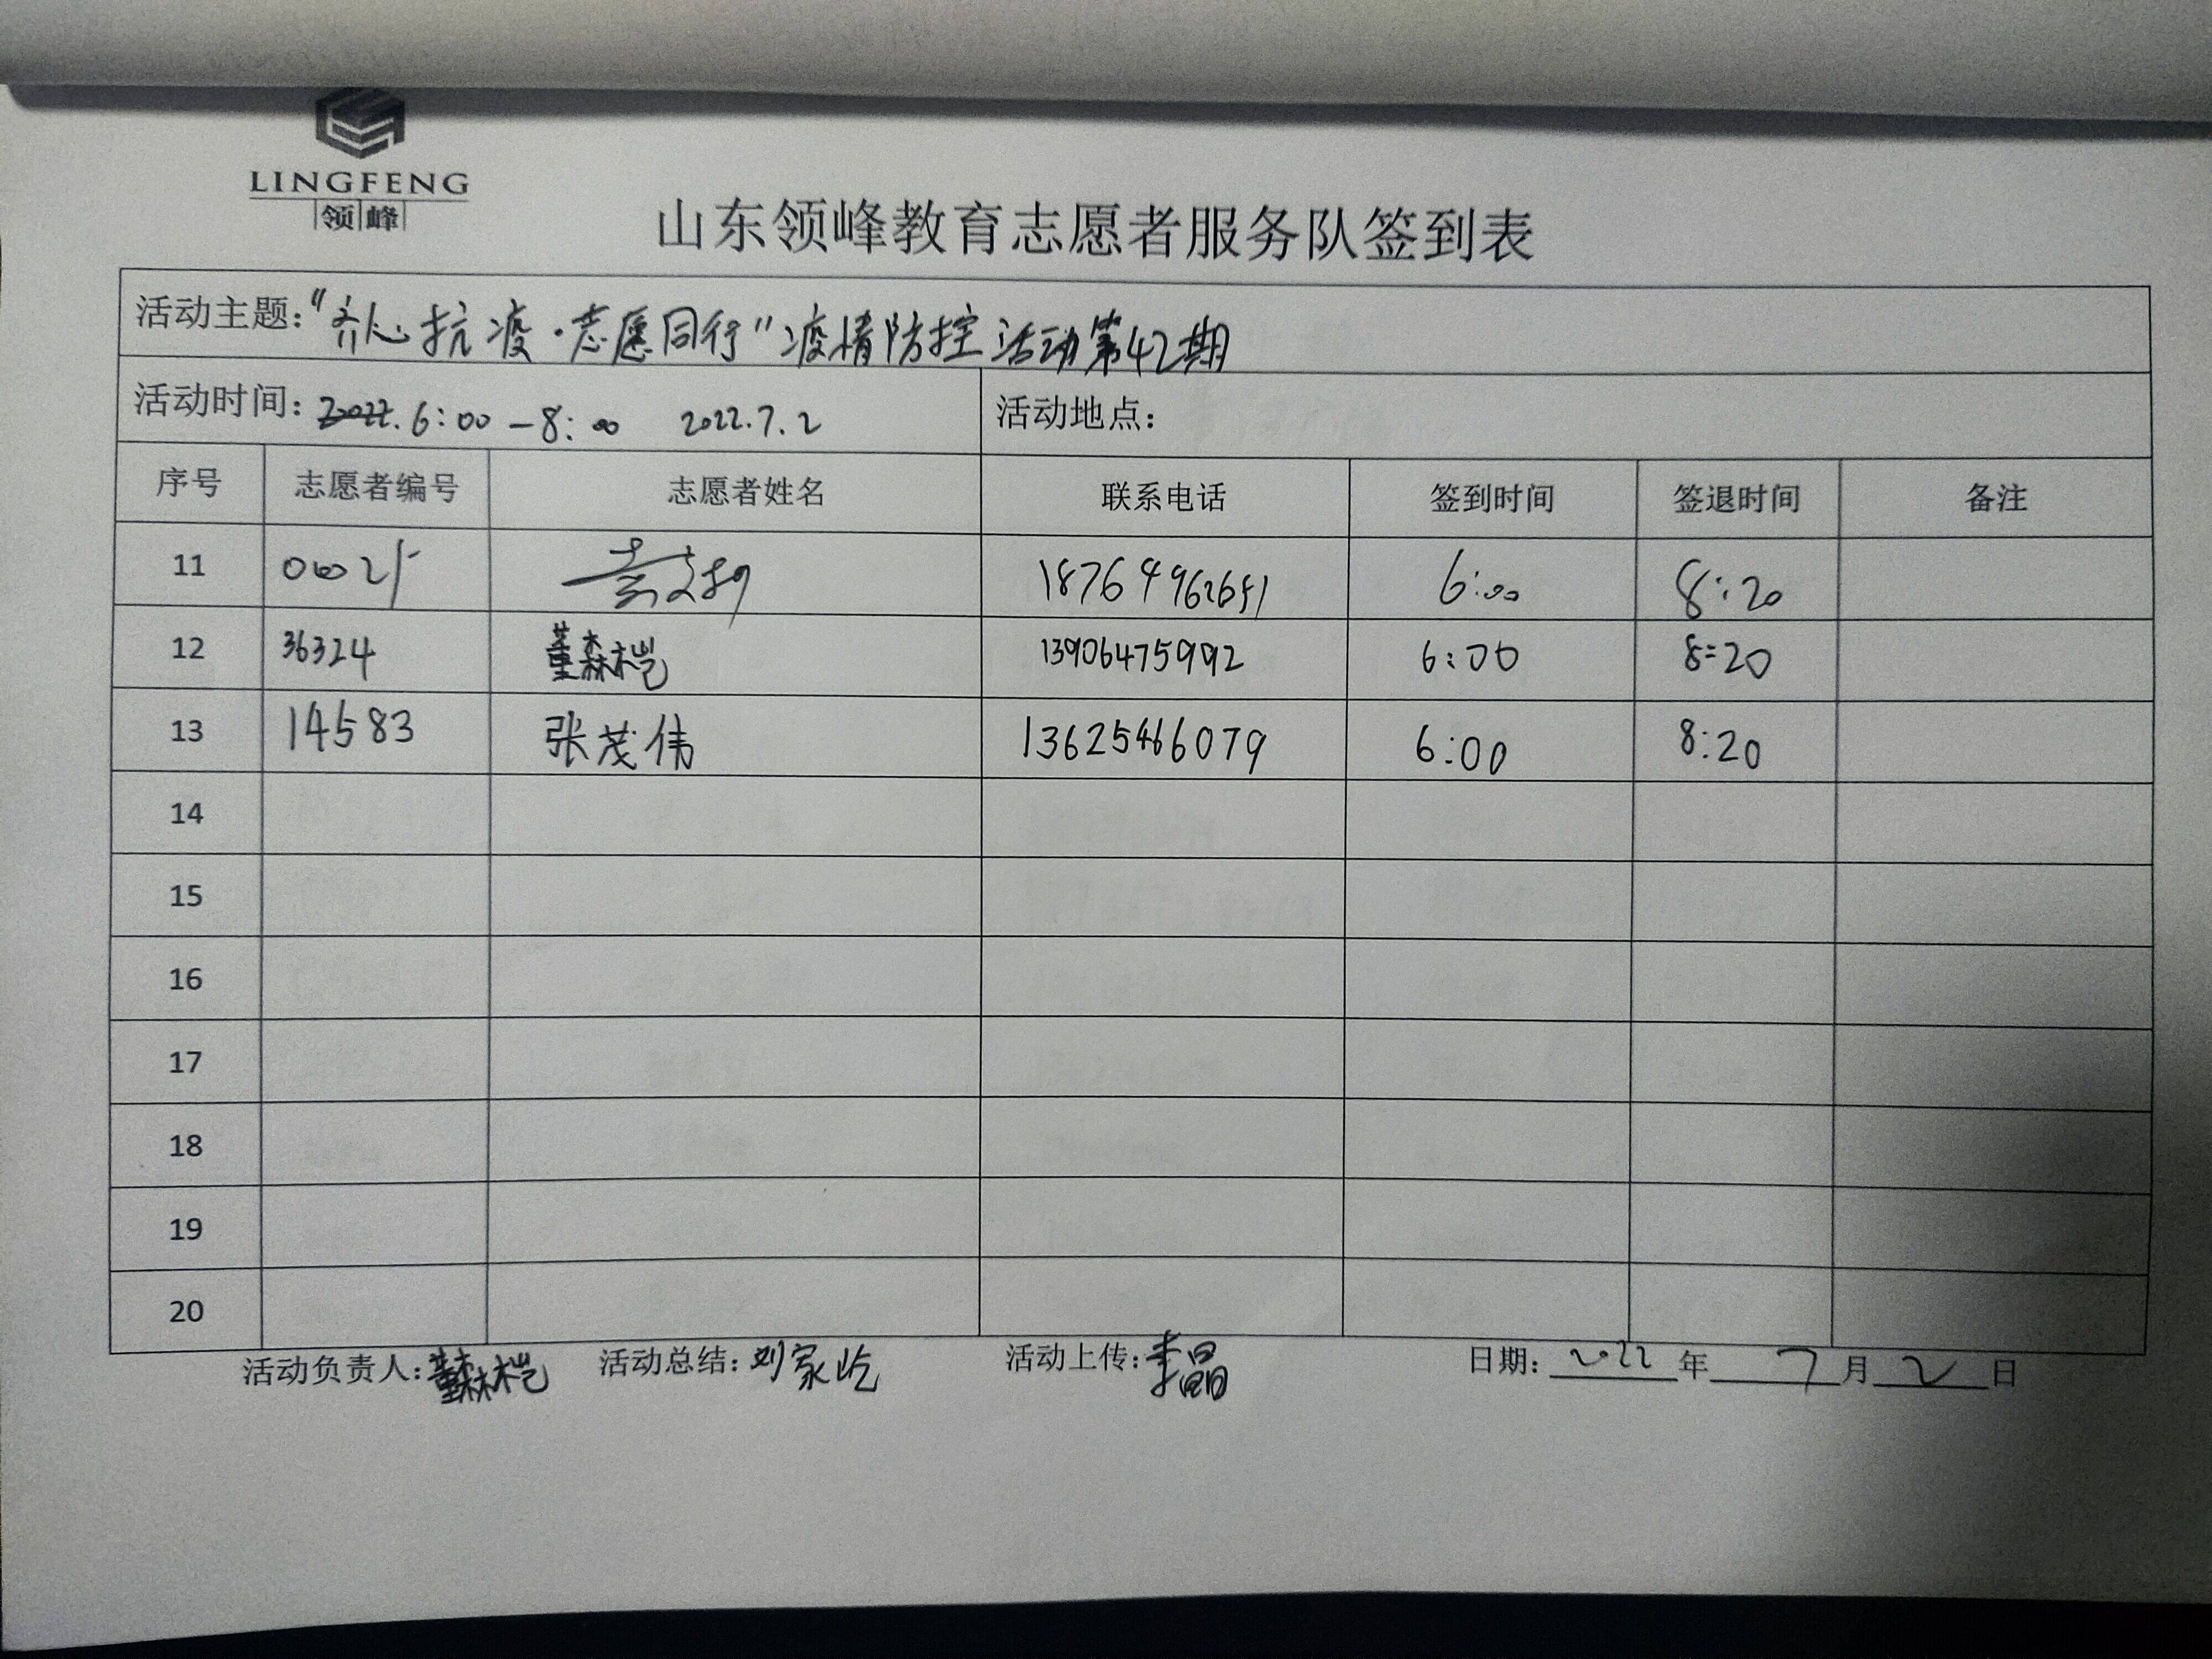 LINGFENG
领峰
山东领峰教育志愿者服务队签到表
活动主题："齐心抗疫·志愿同行"疫情防控活动第42期
活动时间：2022. 6:00-8:00 2022.7.2 活动地点：
序号 志愿者编号 志愿者姓名 联系电话 签到时间 签退时间 备注
11 6:00 8:20
12 36324 董森桤 13906475992 6:00 8:20
13 14583 张茂伟 13625466079 6:00 8:20
14
15
16
17
18
19
20
活动负责人：董森桤 活动总结：刘家屹 活动上传：李晶 日期：2022年7月2日